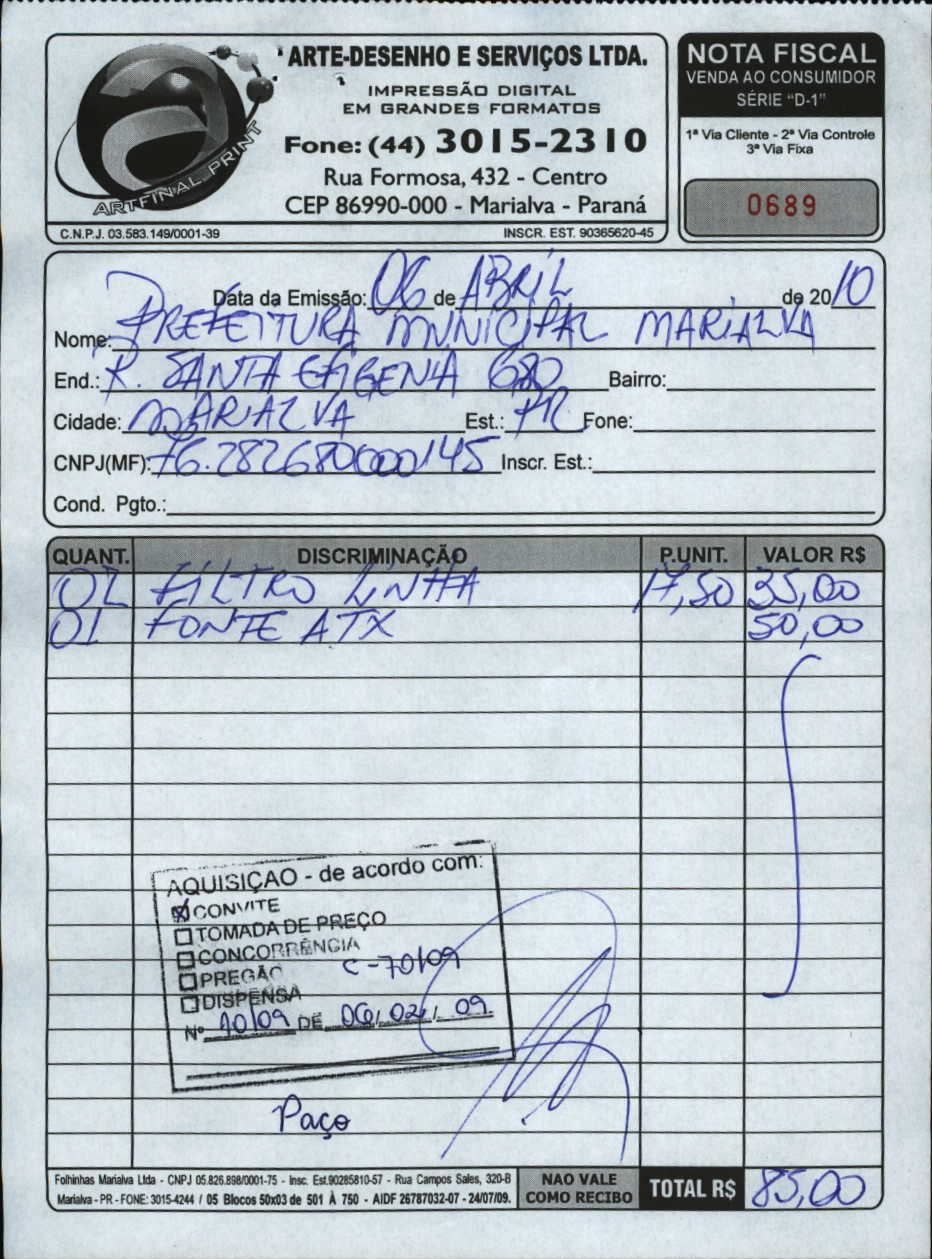 ARTE-DESENHO E SERVIÇOS LTDA.
IMPRESSÃO DIGITAL
EM GRANDES FORMATOS
Fone: (44) 3015-2310
Rua Formosa, 432 - Centro
CEP 86990-000 - Marialva - Paraná
ARTFINAL PRINT
C.N.P.J. 03.583.149/0001-39 INSCR. EST. 90365620-45
NOTA FISCAL
VENDA AO CONSUMIDOR
SÉRIE "D-1"
1ª Via Cliente - 2ª Via Controle
3ª Via Fixa
0689
Data da Emissão: 06 de ABRIL de 2010
Nome: PREFEITURA MUNICIPAL MARIALVA
End.: R. SANTA EFIGENIA 680 Bairro:
Cidade: MARIALVA Est.: PR Fone:
CNPJ(MF): 76.282680000145 Inscr. Est.:
Cond. Pgto.:
QUANT. DISCRIMINAÇÃO P.UNIT. VALOR R$
02 FILTRO LINHA 17,50 35,00
01 FONTE ATX 50,00
AQUISIÇAO - de acordo com:
CONVITE
TOMADA DE PREÇO
CONCORRÊNCIA
PREGÃO C-70/09
DISPENSA
Nº 10/09 DE 06/02/09
Paço
Folhinhas Marialva Ltda - CNPJ 05.826.898/0001-75 - Insc. Est.90285810-57 - Rua Campos Sales, 320-B
Marialva - PR - FONE: 3015-4244 / 05 Blocos 50x03 de 501 À 750 - AIDF 26787032-07 - 24/07/09.
NAO VALE
COMO RECIBO
TOTAL R$ 85,00